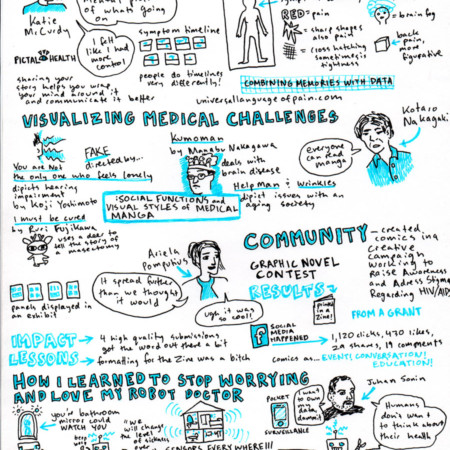 what's
going on
Katie
McCurdy
I felt
like I had
more
control
PICTAL HEALTH
symptom timeline
people do timelines
very differently!
sharing your
story helps you wrap
your mind around it
and communicate it better
RED=pain
= sharp shapes
also pain
= cross hatching
sometimes is
tightness
= brain fog
back
pain,
more
figurative
COMBINING MEMORIES WITH DATA
universallanguageofpain.com
VISUALIZING MEDICAL CHALLENGES
You are Not
the only one who feels lonely
dipicts hearing
impairment
by Koji Yoshimoto
I must be cured
by Ruri Fujikawa
uses a deer to
tell the story of
a masectomy
FAKE
directed by...
Kumoman
by Manabu Nakagawa
deals with
brain disease
Helpman & Wrinkles
dipict issues with an
aging society
:SOCIAL FUNCTIONS and
VISUAL STYLES of MEDICAL
MANGA
everyone
can read
manga
Kotaro
Nakagaki
panels displayed in
an exhibit
Ariella
Pomputius
It spread further
than we thought
it would
ugh it was
so cool!
COMMUNITY
- created
comics in a
creative
campaign
working to
Raise Awareness
and Adress Stigma
Regarding HIV/AIDS
GRAPHIC NOVEL
CONTEST
RESULTS
printed
in a
Zine!
FROM A GRANT
SOCIAL
MEDIA
HAPPENED
1,120 clicks, 470 likes,
24 shares, 19 comments
comics as... EVENT! CONVERSATION!
EDUCATION!
IMPACT
4 high quality submissions!
got the word out there a bit
LESSONS
formatting for the Zine was a bitch
HOW I LEARNED TO STOP WORRYING
AND LOVE MY ROBOT DOCTOR
you'r bathroom
mirror could
WATCH YOU
"we
will
change
the
level
of sickness
SENSORS EVERYWHERE!!!
POCKET
SURVEILLANCE
I want
to own
my
data,
dammit
Juhan Sonin
Humans
don't want
to think about
their health